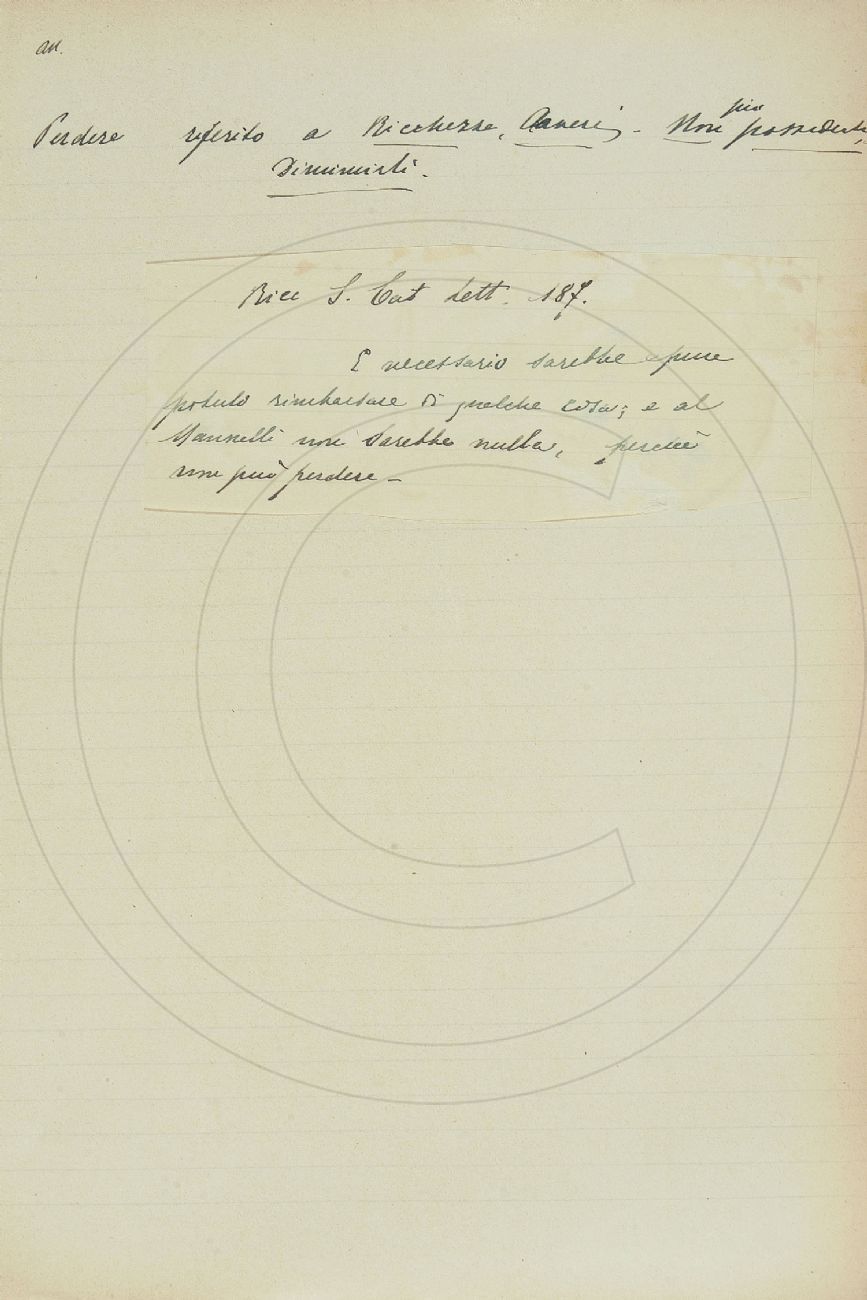 an.
Perdere riferito a Ricchezze, Averi, - Non più possederli,
Diminuirli.
Ricc S. Cat Lett. 187.
E necessario sarebbe pure
potuto rimborsare di qualche cosa; e al
Mannelli non sarebbe nulla, perchè
non può perdere -